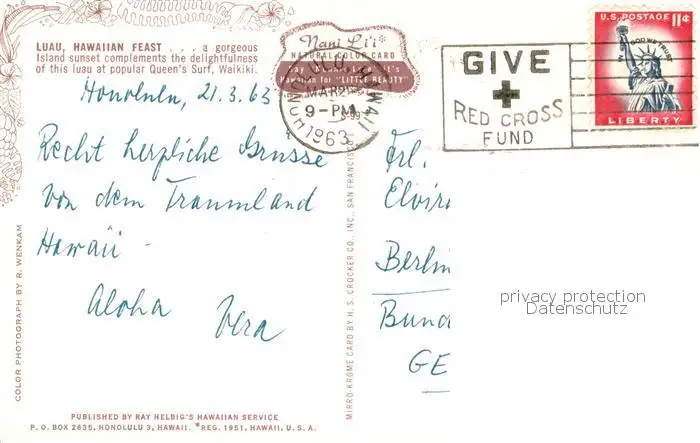 LUAU, HAWAIIAN FEAST . . . a gorgeous
Island sunset complements the delightfulness
of this luau at popular Queen's Surf, Waikiki.
Nani Li'i*
NATURAL COLOR CARD
Hawaiian for "LITTLE BEAUTY"
HONOLULU, HAWAII
MAR 21
9-PM
1963
GIVE
RED CROSS
FUND
U.S. POSTAGE 11¢
IN GOD WE TRUST
LIBERTY
Honolulu, 21.3.63
Recht herzliche Grüsse
von dem Traumland
Hawaii -
Aloha Vera
Frl.
Elvir
Berlin
Bund
GE
privacy protection
Datenschutz
COLOR PHOTOGRAPH BY R. WENKAM
MIRRO-KROME CARD BY H. S. CROCKER CO., INC., SAN FRANCISC
PUBLISHED BY RAY HELBIG'S HAWAIIAN SERVICE
P. O. BOX 2835, HONOLULU 3, HAWAII. *REG. 1951, HAWAII, U. S. A.